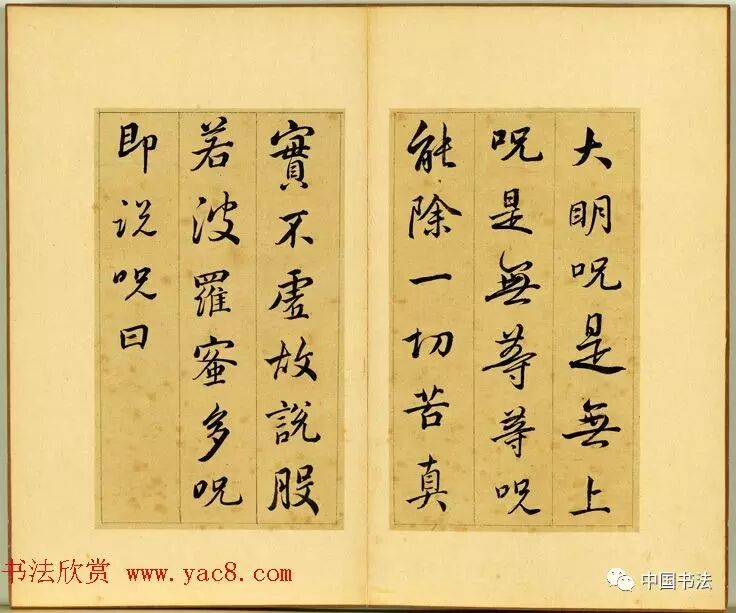 大明咒是無上
咒是無等等咒
能除一切苦真
實不虛故說般
若波羅蜜多咒
即说咒曰
书法欣赏 www.yac8.com
中国书法